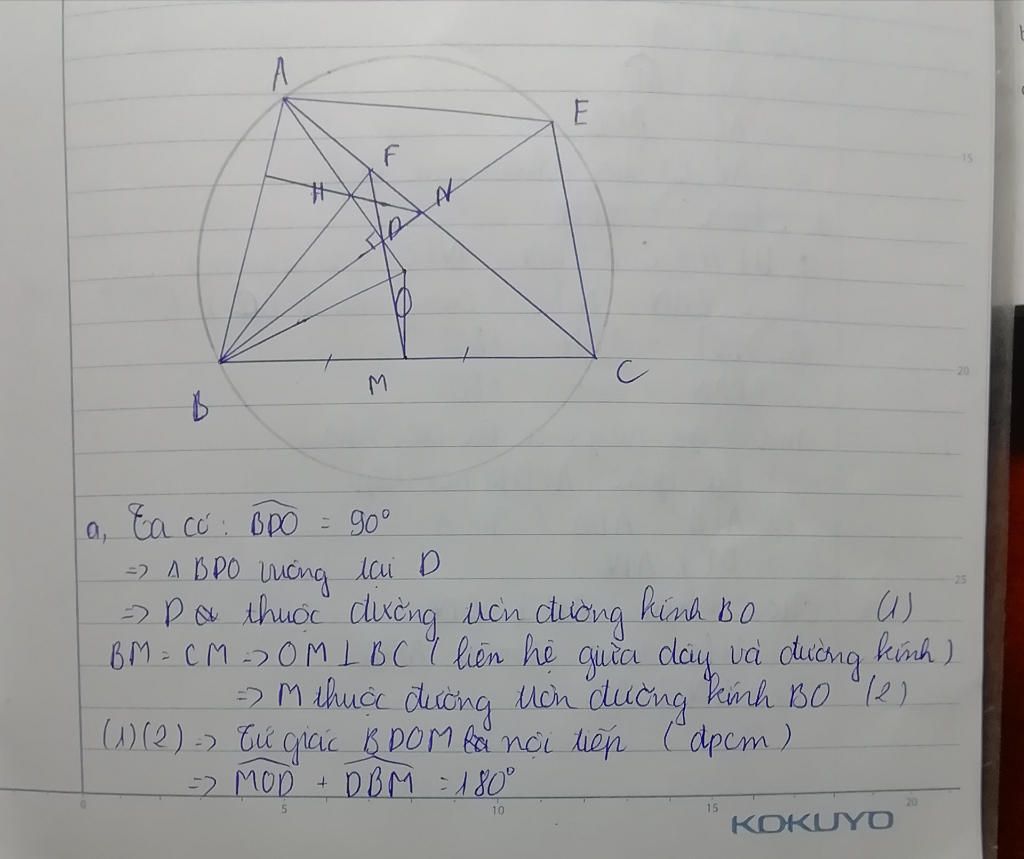 A
E
F
H
N
D
O
B
M
C
15
20
25
a, Ta có: BDO = 90°
=> Δ BDO vuông tại D
=> D thuộc đường tròn đường kính BO (1)
BM = CM => OM ⊥ BC (liên hệ giữa dây và đường kính)
=> M thuộc đường tròn đường kính BO (2)
(1)(2) => Tứ giác BDOM nội tiếp (đpcm)
=> MOD + DBM = 180°
0 5 10 15 20
KOKUYO